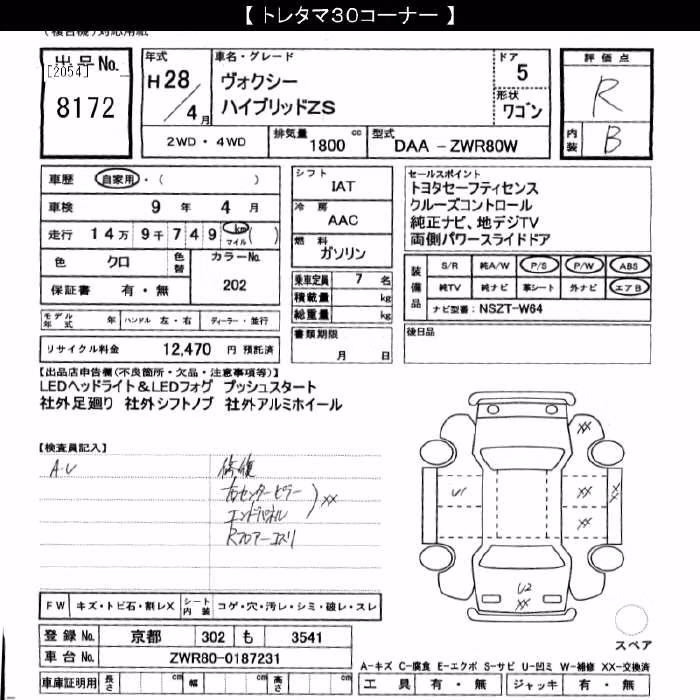 【 トレタマ30コーナー 】
(複合機)対応用紙
出品No.
[2054]
8172
年式
H28/4月
車名・グレード
ヴォクシー
ハイブリッドZS
ドア
5
形状
ワゴン
評価点
R
内装
B
2WD・4WD
排気量 1800 cc
型式 DAA-ZWR80W
車歴 自家用・( )
車検 9年 4月
走行 14万 9千 7 4 9 km マイル ( )
色 クロ
色替
カラーNo. 202
保証書 有・無
モデル年式 年
ハンドル 左・右
ディーラー・並行
リサイクル料金 12,470 円 預託済
シフト
IAT
冷房
AAC
燃料
ガソリン
乗車定員 7 名
積載量 kg
総重量 kg
書類期限
月 日
セールスポイント
トヨタセーフティセンス
クルーズコントロール
純正ナビ、地デジTV
両側パワースライドドア
装備品
S/R 純A/W P/S P/W ABS
純TV 純ナビ 革シート 外ナビ エアB
ナビ型番: NSZT-W64
後日品
【出品店申告欄(不良箇所・欠品・注意事項等)】
LEDヘッドライト&LEDフォグ プッシュスタート
社外足廻り 社外シフトノブ 社外アルミホイール
【検査員記入】
A・U
修復
右センターピラー
エンドパネル
XX
Rフロアーコスリ
XX
U1
XX
XX
XX
U2
XX
スペア
FW キズ・トビ石・割レX
シート内装 コゲ・穴・汚レ・シミ・破レ・スレ
登録No. 京都 302 も 3541
車台No. ZWR80-0187231
車庫証明用 長さ cm 幅 cm 高さ cm
A-キズ C-腐食 E-エクボ S-サビ U-凹ミ W-補修 XX-交換済
工具 有・無 ジャッキ 有・無